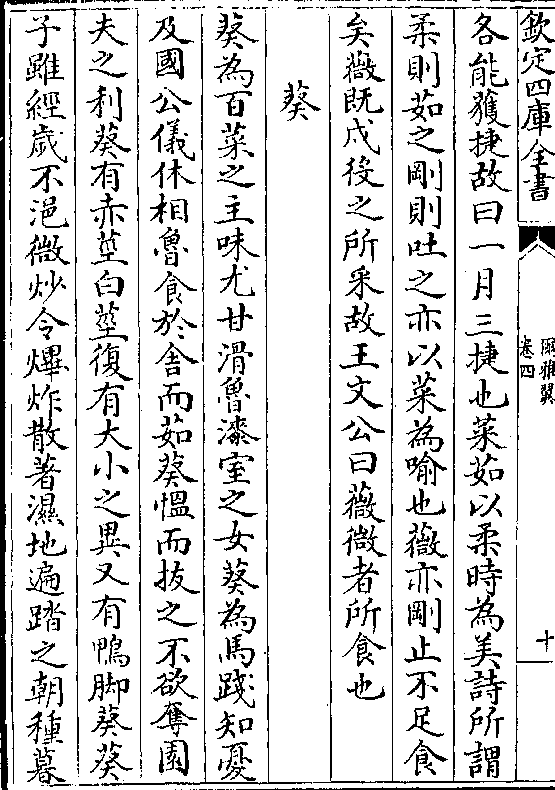 欽定四庫全書
爾雅翼
卷四
十
各能獲捷故曰一月三捷也菜茹以柔時為美詩所謂
柔則茹之剛則吐之亦以菜為喻也薇亦剛止不足食
矣薇既戍役之所采故王文公曰薇微者所食也
葵
葵為百菜之主味尤甘滑魯漆室之女葵為馬踐知憂
及國公儀休相魯食於舍而茹葵愠而拔之不欲奪園
夫之利葵有赤莖白莖復有大小之異又有鴨脚葵葵
子雖經歲不浥微炒令爆炸散著濕地遍踏之朝種暮